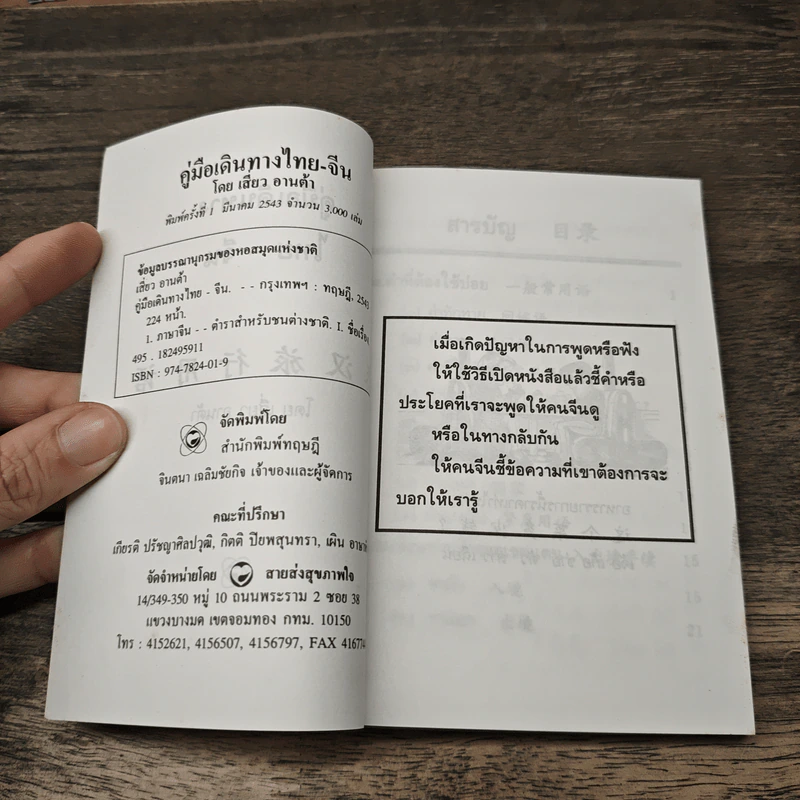 คู่มือเดินทางไทย-จีน
โดย เสี่ยว อานต้า
พิมพ์ครั้งที่ 1 มีนาคม 2543 จำนวน 3,000 เล่ม
ข้อมูลบรรณานุกรมของหอสมุดแห่งชาติ
เสี่ยว อานต้า
คู่มือเดินทางไทย - จีน. - - กรุงเทพฯ : ทฤษฎี, 2543
224 หน้า.
1. ภาษาจีน - - ตำราสำหรับชนต่างชาติ. I. ชื่อเรื่อง
495 . 182495911
ISBN : 974-7824-01-9
จัดพิมพ์โดย
สำนักพิมพ์ทฤษฎี
จินตนา เฉลิมชัยกิจ เจ้าของและผู้จัดการ
คณะที่ปรึกษา
เกียรติ ปรัชญาศิลปวุฒิ, กิตติ ปิยพสุนทรา, เผิน
จัดจำหน่ายโดย สายส่งสุขภาพใจ
14/349-350 หมู่ 10 ถนนพระราม 2 ซอย 38
แขวงบางมด เขตจอมทอง กทม. 10150
โทร : 4152621, 4156507, 4156797, FAX
เมื่อเกิดปัญหาในการพูดหรือฟัง
ให้ใช้วิธีเปิดหนังสือแล้วชี้คำหรือ
ประโยคที่เราจะพูดให้คนจีนดู
หรือในทางกลับกัน
ให้คนจีนชี้ข้อความที่เขาต้องการจะ
บอกให้เรารู้